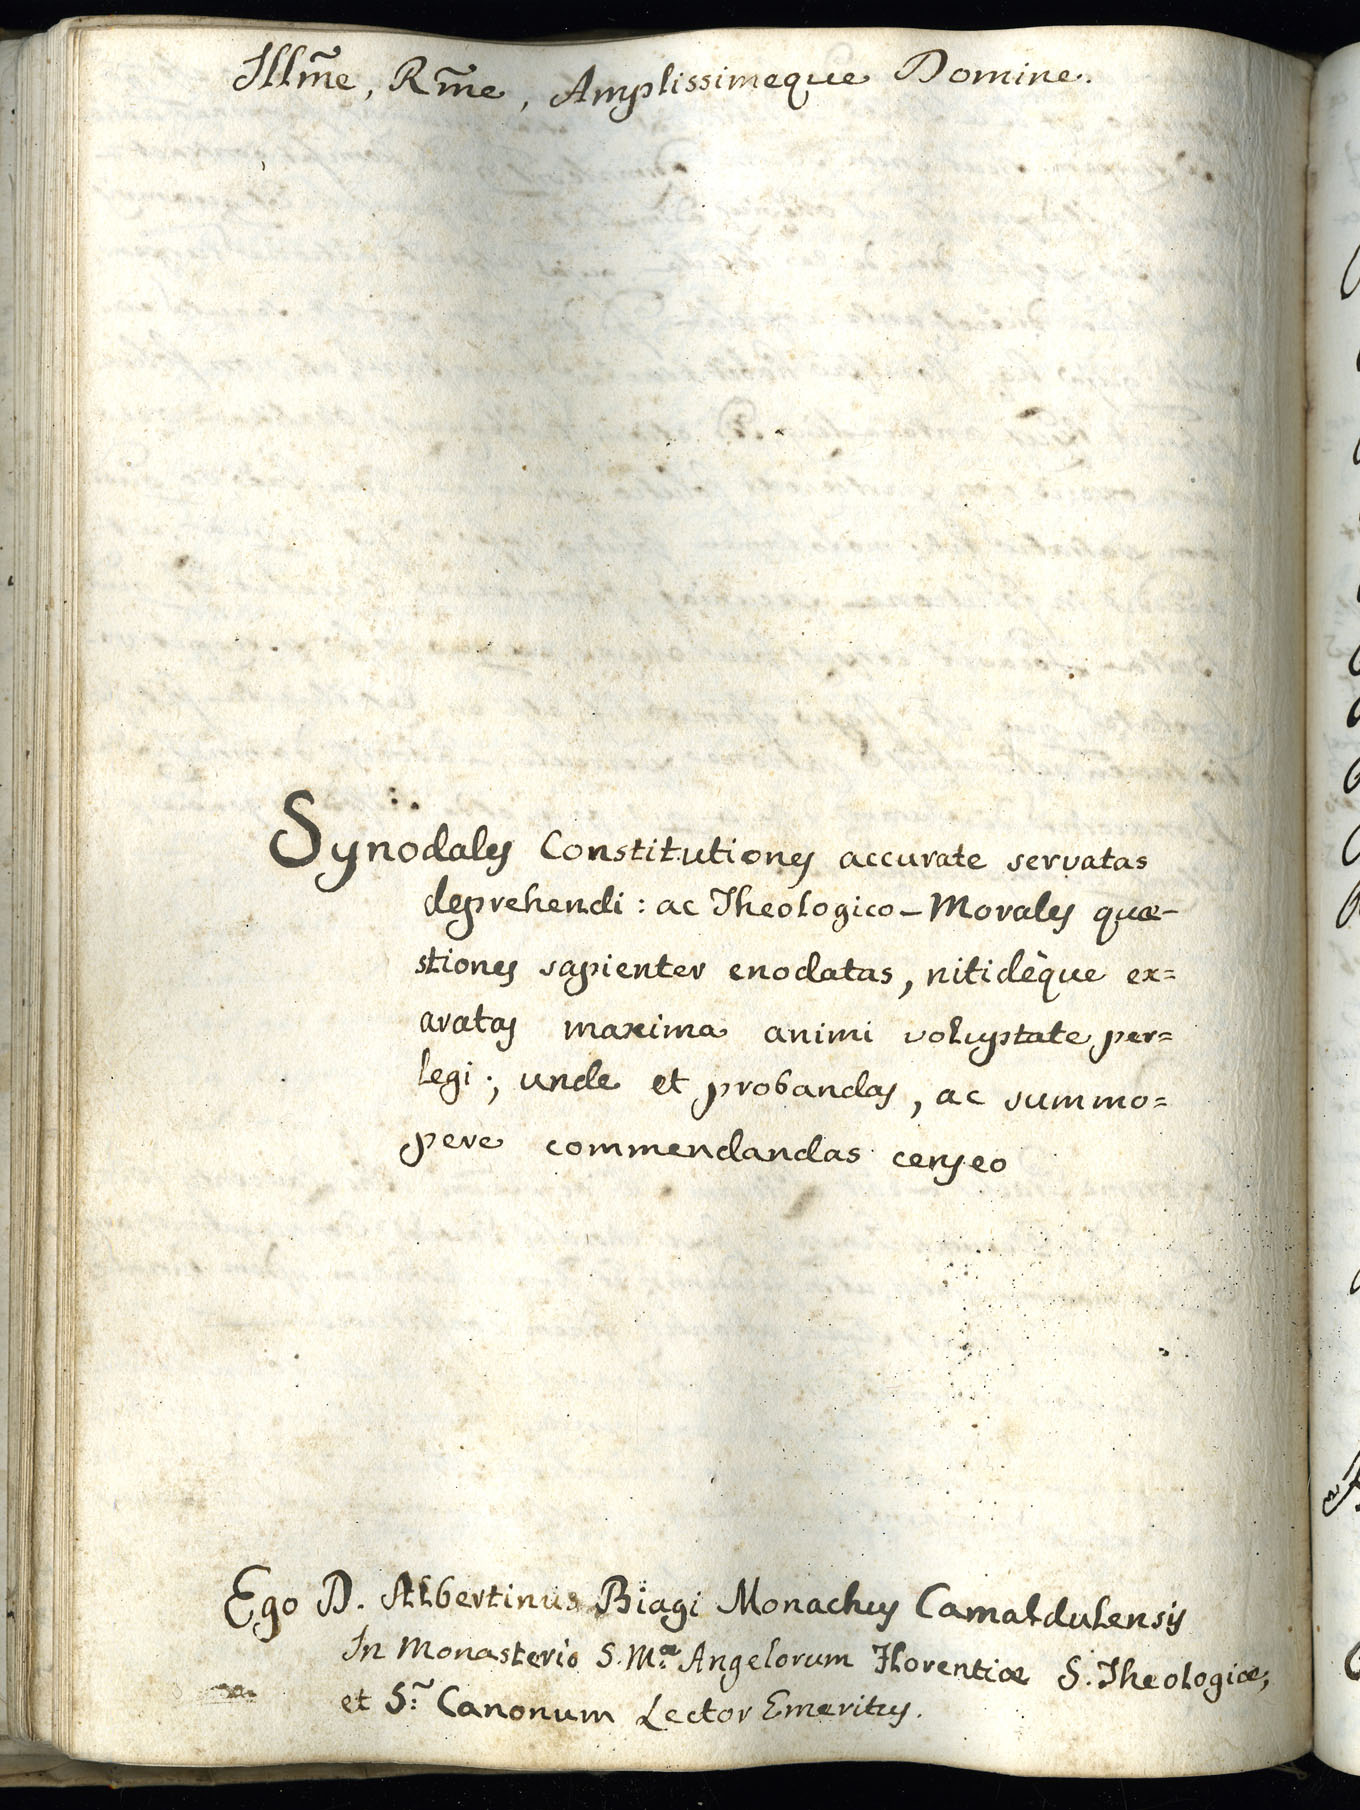 Illm̃e, Rm̃e, Amplissimeque Domine.
Synodales Constitutiones accurate servatas
deprehendi: ac Theologico-Morales quæ-
stiones sapienter enodatas, nitidèque ex=
aratas maxima animi voluptate per=
legi; unde et probandas, ac summo=
pere commendandas censeo
Ego D. Albertinus Biagi Monachus Camaldulensis
In Monasterio S. Mæ Angelorum Florentiæ S. Theologiæ,
et S.̃ Canonum Lector Emeritus.